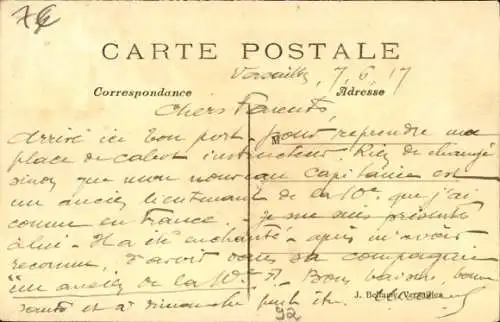 76
CARTE POSTALE
Versailles, 7, 6, 17
Correspondance Adresse
Chers Parents,
Arrivé ici bon port pour reprendre ma
M
place de cabot instructeur. Rien de changé
sinon que mon nouveau Capitaine est
un ancien lieutenant de la 10e que j'ai
connu en France. je me suis présenté
à lui. Il a été enchanté après m'avoir
reconnu, d'avoir dans sa compagnie
un ancien de la 10e Bons baisers, bonne
J. Bellamy, Versailles
santé et à dimanche
92